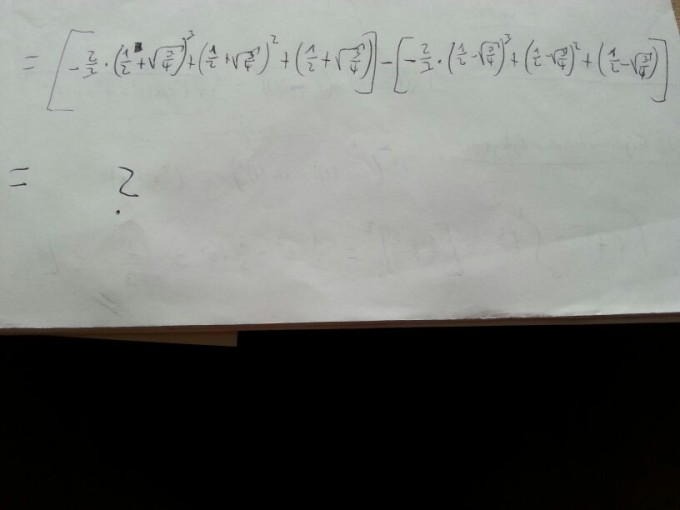 = [-2/3 · (1/2 + √(3/4))³ + (1/2 + √(3/4))² + (1/2 + √(3/4))] - [-2/3 · (1/2 - √(3/4))³ + (1/2 - √(3/4))² + (1/2 - √(3/4))]
= ?